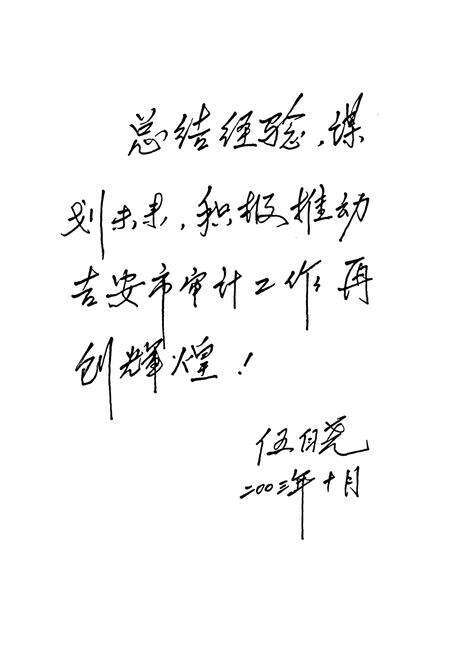 总结经验,谋
划未来,积极推动
吉安市审计工作再
创辉煌!
伍自尧
二00三年十月